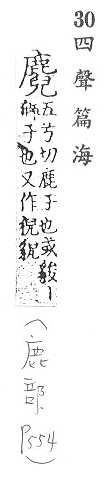 30 四聲篇海
麑
五兮切鹿子也或丨
獅子也又作猊貎
(鹿部
P554)